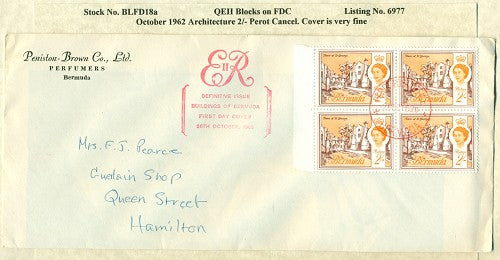 Stock No. BLFD18a QEII Blocks on FDC Listing No. 6977
October 1962 Architecture 2/- Perot Cancel. Cover is very fine
Peniston-Brown Co., Ltd.
PERFUMERS
Bermuda
EIIR
DEFINITIVE ISSUE
BUILDINGS OF BERMUDA
FIRST DAY COVER
26TH OCTOBER, 1962
Mrs. E. J. Pearce
Guerlain Shop
Queen Street
Hamilton
Bermuda 2/-
Bermuda 2/-
Bermuda 2/-
Bermuda 2/-